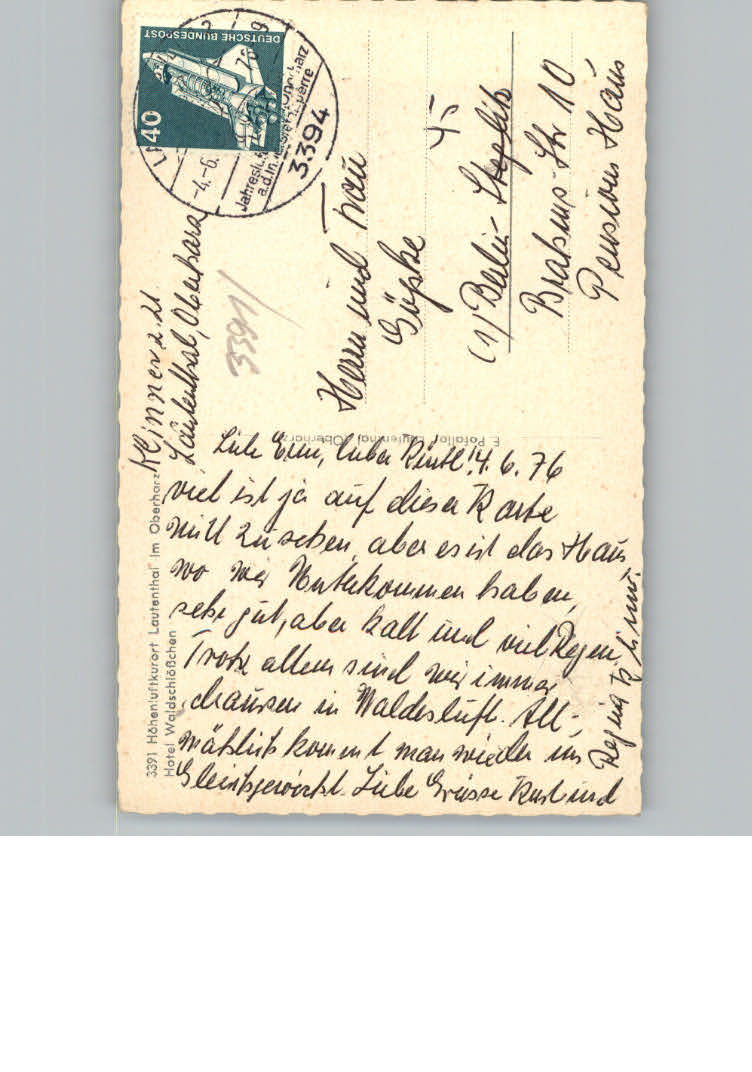 DEUTSCHE BUNDESPOST
40
-4.-6.
a.d. Innerstetalsperre
3394
Lautenthal, Oberharz
3391
Herrn und Frau
Göpke
45
(1) Berlin-Steglitz
Brahms-Str 10
Pensions Haus
3391 Höhenluftkurort Lautenthal im Oberharz
Hotel Waldschlößchen
Lautenthal/Oberharz
4.6.76
viel ist ja auf dieser Karte
nicht zu sehen, aber es ist das Haus
wo wir Unterkommen haben,
sehr gut, aber kalt und viel Regen
Trotz allem sind wir immer
draussen in Waldesluft. All-
mählich kommt man wieder ins
Gleichgewicht. Liebe Grüsse Kurt und